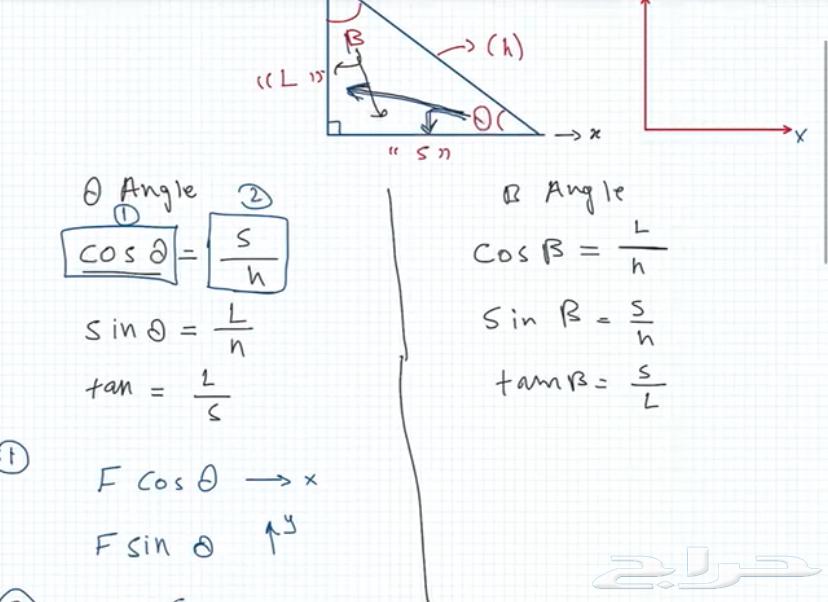 β
(h)
"L"
θ
x
"S"
x
θ Angle
① ②
cos θ = S/h
sin θ = L/h
tan = L/S
① F cos θ → x
F sin θ ↑ y
β Angle
cos β = L/h
sin β = S/h
tan β = S/L
حراج